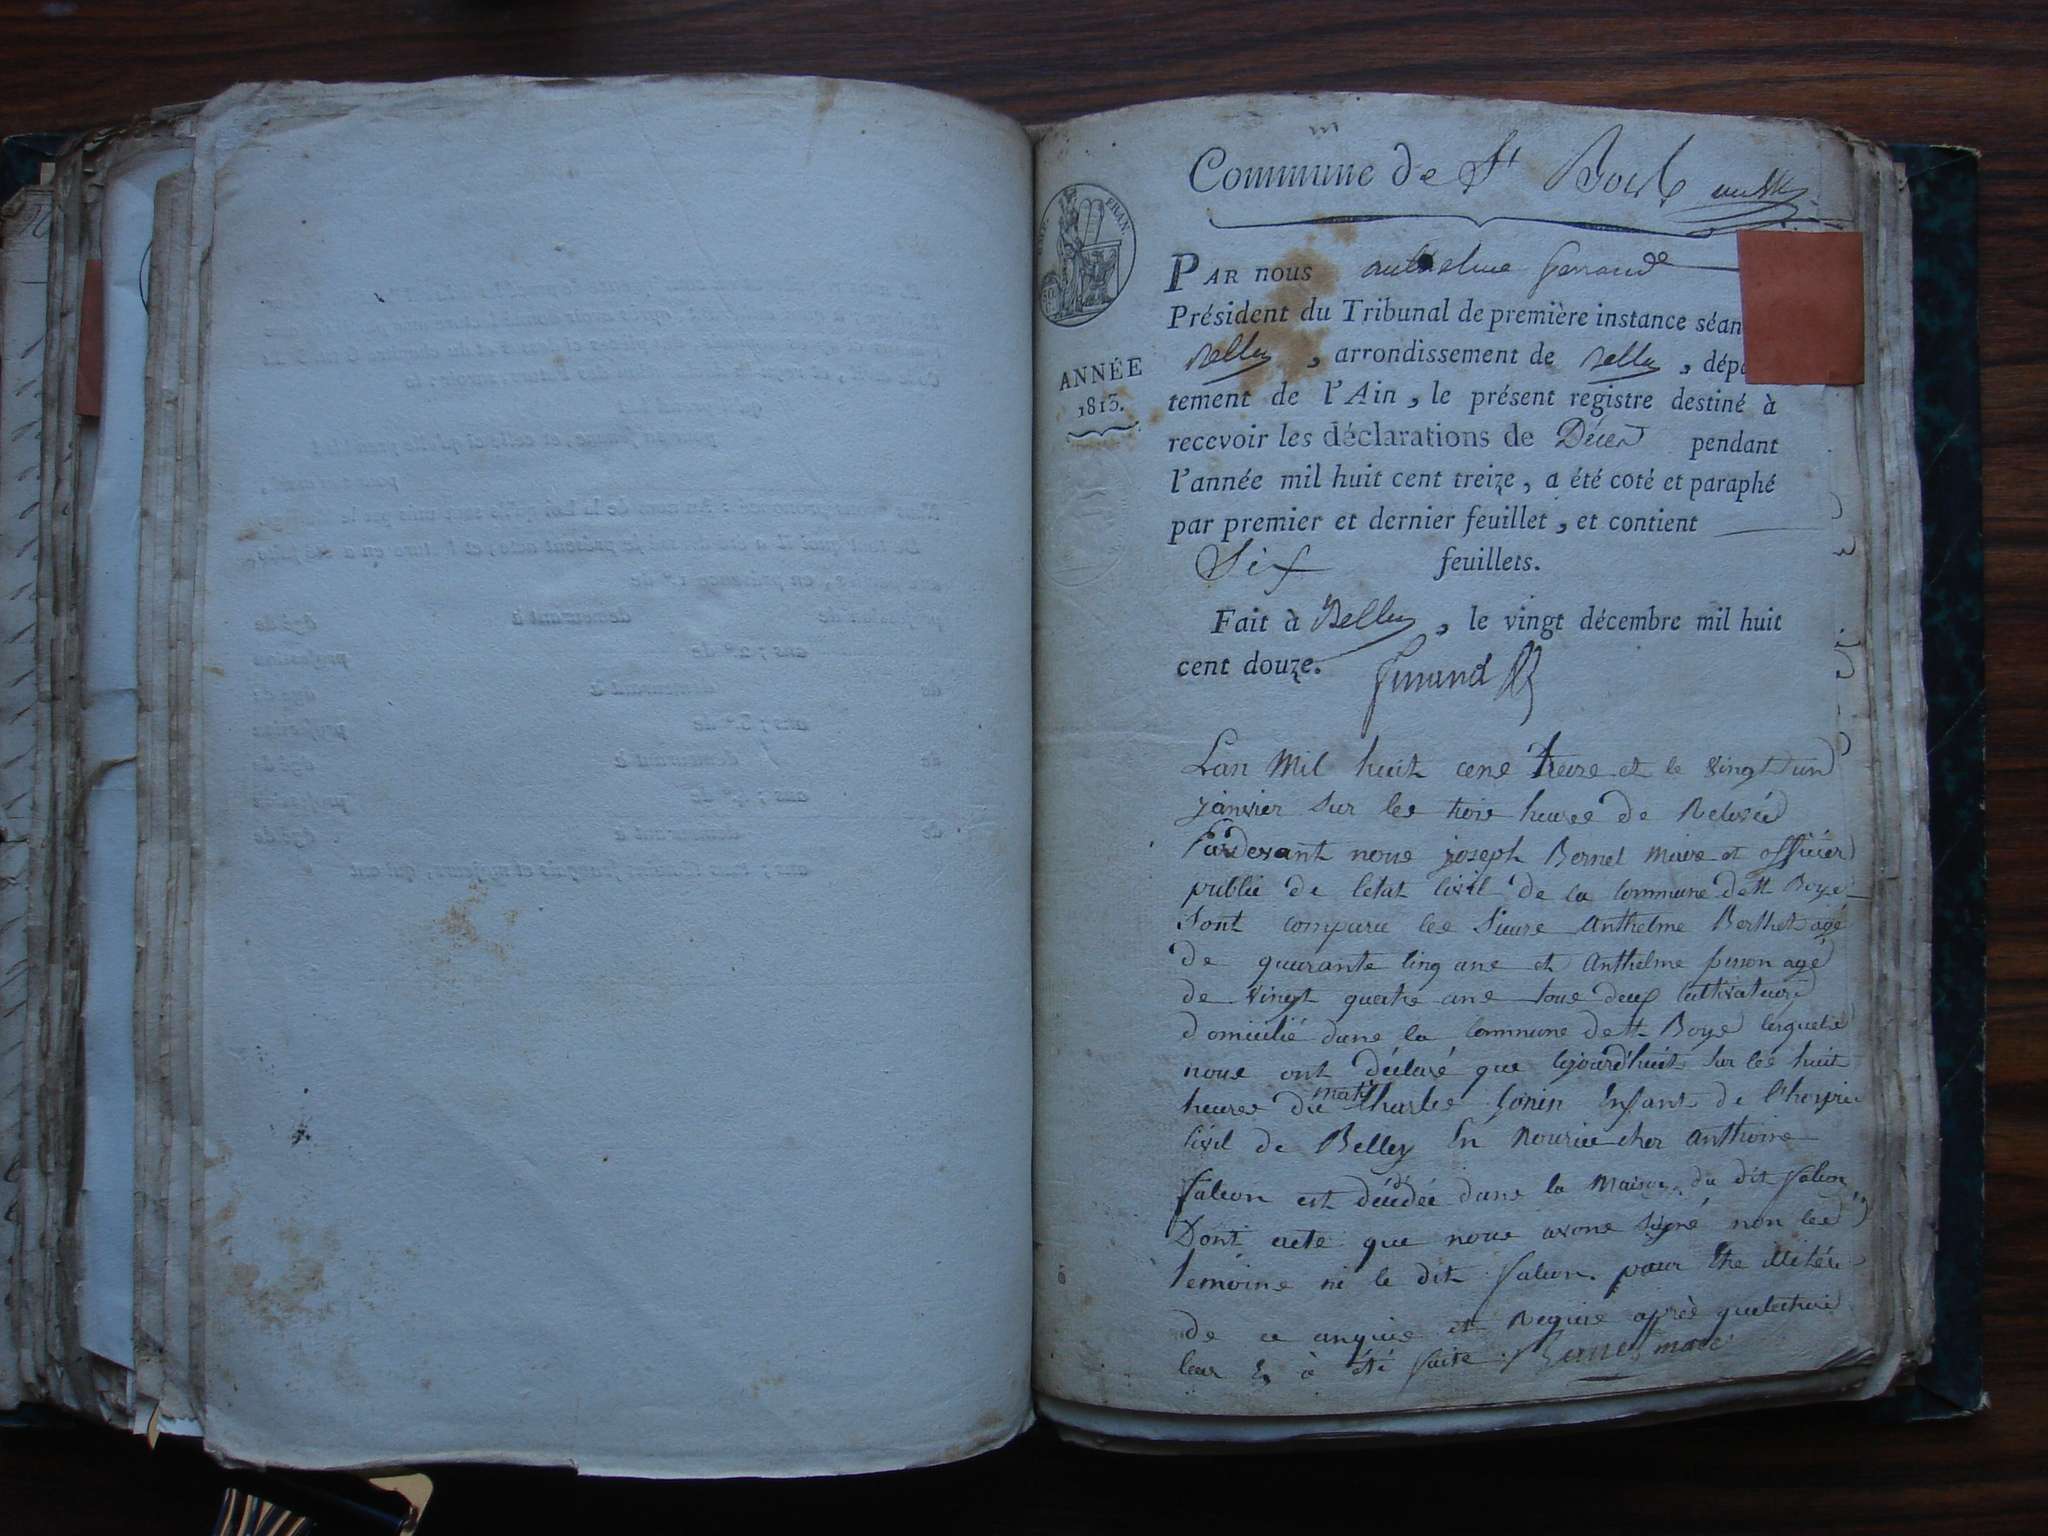 Commune de St Bois
FRAN.
PAR nous anthelme Gerrand
Président du Tribunal de première instance séan
Belley, arrondissement de Belley, dépa
tement de l'Ain, le présent registre destiné à
recevoir les déclarations de Décès pendant
l'année mil huit cent treize, a été coté et paraphé
par premier et dernier feuillet, et contient
Six feuillets.
Fait à Belley, le vingt décembre mil huit
cent douze.
ANNÉE
1813.
Lan Mil huit cent treize et le vingt un
janvier sur les trois heures de Relevée
Pardevant nous joseph Bernet Maire et officier
public de letat Civil de la Commune de St Boys
Sont comparu les Sieurs Anthelme Berthet agé
de quarante cinq ans et Anthelme pinon agé
de vingt quatre ans tous deux Cultivateurs
domicilié dans la Commune de St Boys lesquels
nous ont déclaré que cejourd'huit sur les huit
heures du matin Charles Gonin Enfant de l'hospice
Civil de Belley En Nourice cher Anthoine
falcon est décédée dans la Maison du dit falcon
Dont acte que nous avons signé non les
temoins ni le dit falcon pour Etre illitéré
de ce enquis et Requis après quelecture
leur En à été faite. Bernet maire